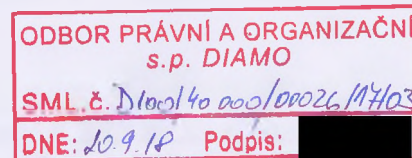 ODBOR PRÁVNÍ A ORGANIZAČNÍ
s.p. DIAMO
SML. č. D100/40 000/00026/17/03
DNE: 20.9.18 Podpis: